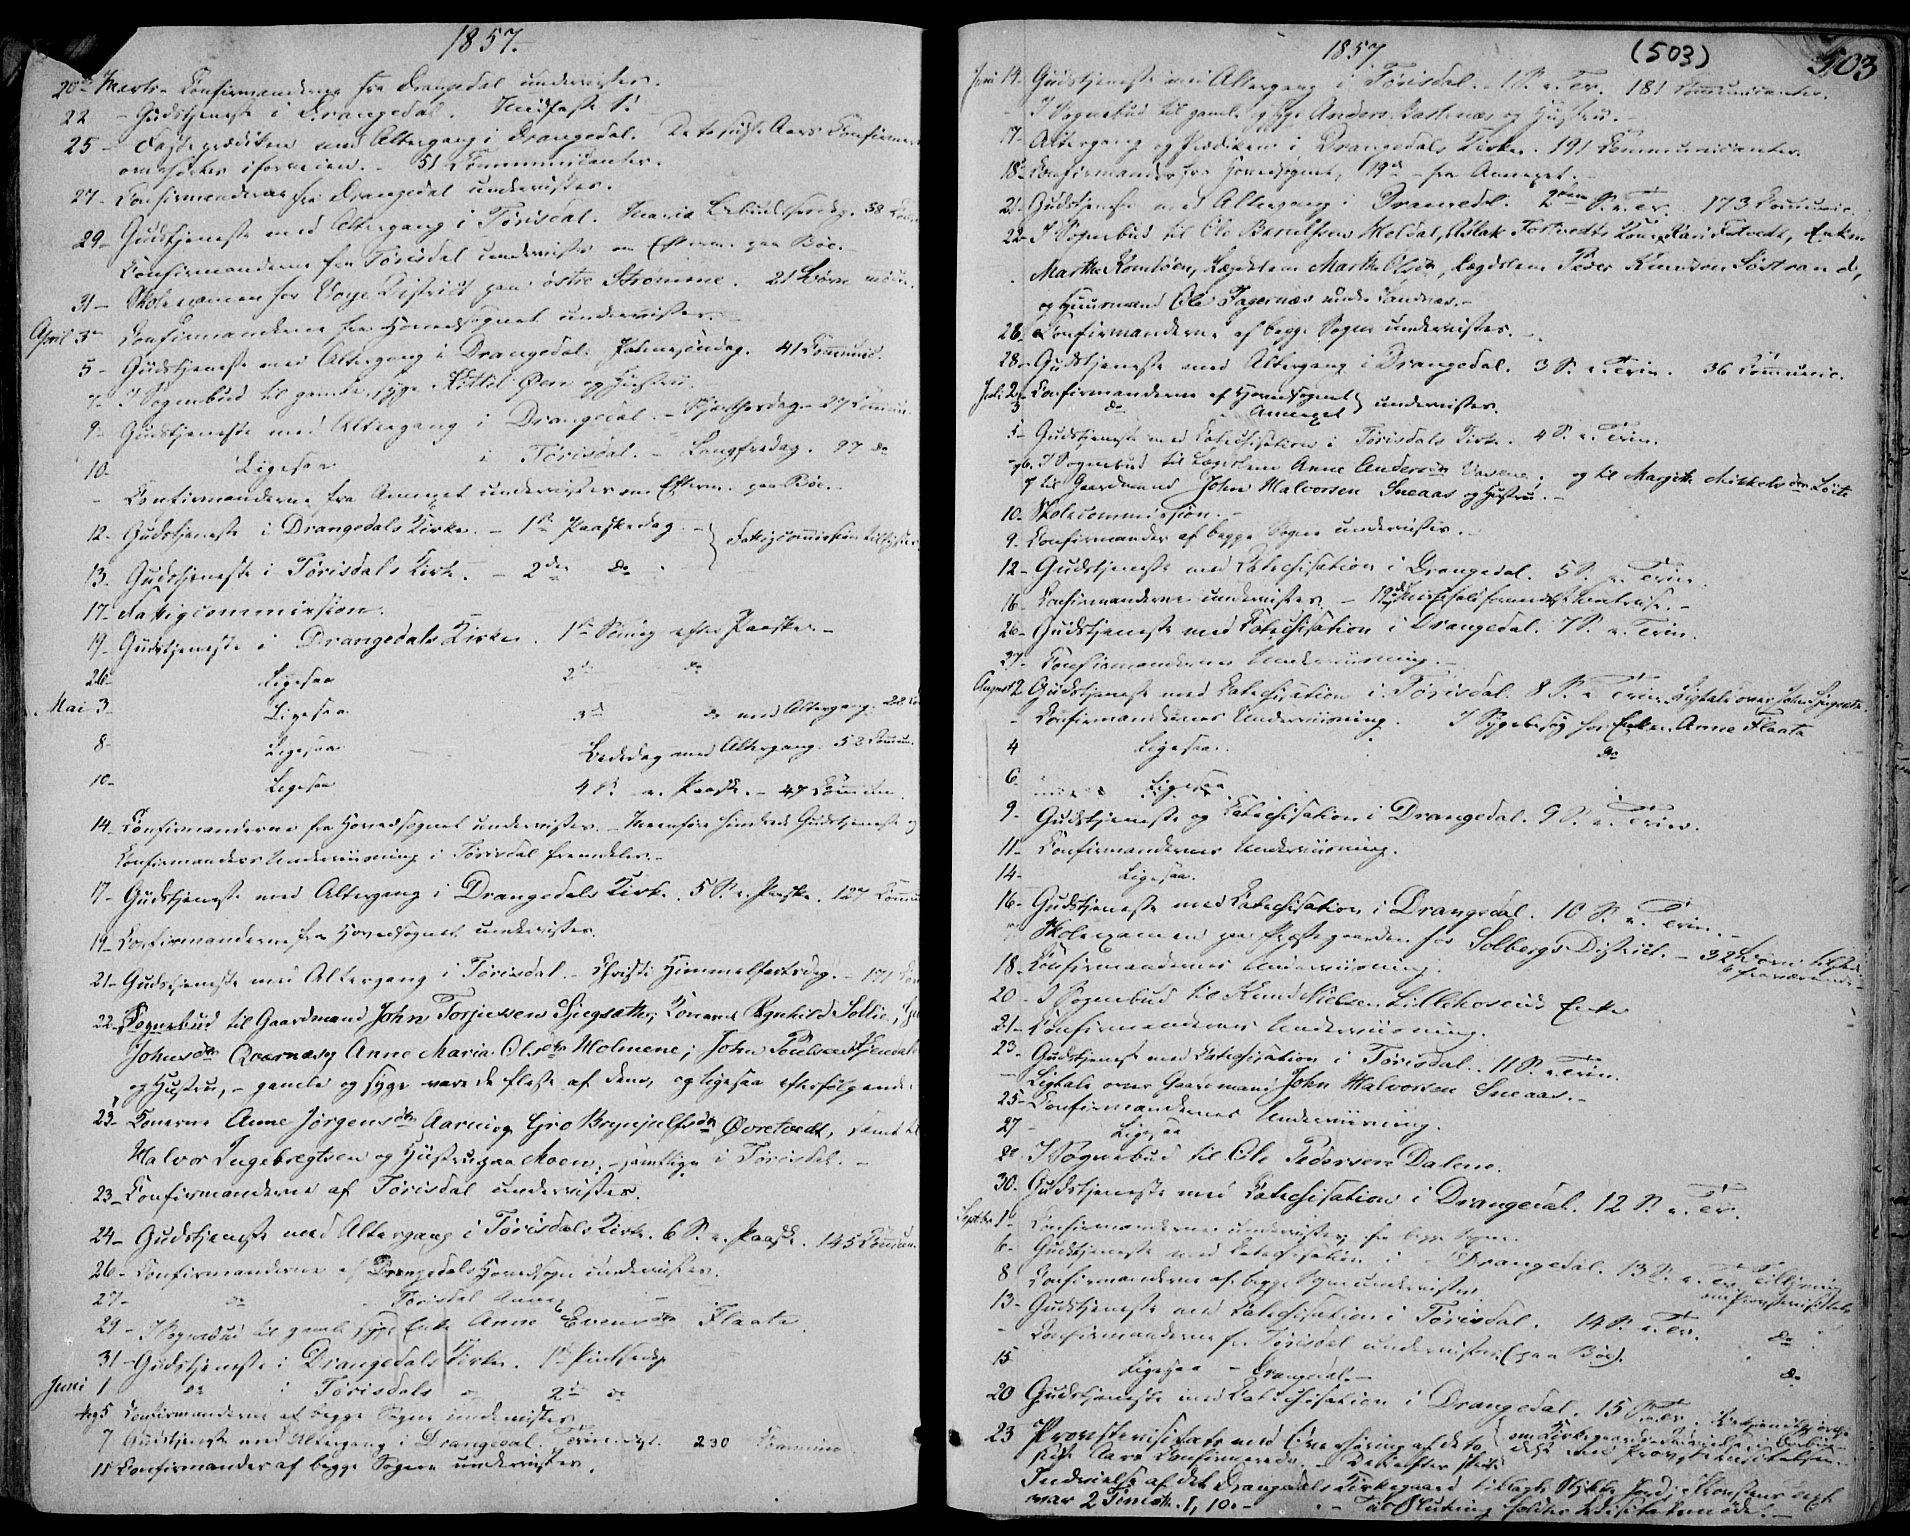 1857.
20de Marts - Confirmanderne fra Drangedal undervistes.
22 - Gudstjeneste i Drangedal. Midfaste S.
25 - Fasteprædiken med Altergang i Drangedal. De to sidste Aars Confirme
iforveien. - 51 Communicanter.
27 - Confirmanderne fra Drangedal undervistes.
29 - Gudstjeneste med Altergang i Tørisdal. Maria Bebudelsesdag. 38 Com
Confirmanderne fra Tørisdal undervistes om Efterm. paa Bøe.
31 - Skoleexamen for Voje District paa østre Strømme. 21 Børn
April 3 - Confirmanderne fra Hovedsognet undervistes.
5 - Gudstjeneste med Altergang i Drangedal. Palmesøndag. 41 Communic.
7 - I Sognebud til gamle, syge Kittil Øen og Hustru.
9 - Gudstjeneste med Altergang i Drangedal. - Skjærthorsdag - 27 Commun.
10 - Ligesaa i Tørisdal. - Langfredag. 97 do
- Confirmanderne fra Annexet undervistes om Efterm. paa Bøe.
12 - Gudstjeneste i Drangedals Kirke. - 1ste Paaskedag. - Fattigcommission
13. Gudstjeneste i Tørisdals Kirke. - 2den do
17 - Fattigcommission.
19 - Gudstjeneste i Drangedals Kirke. 1ste Søndag efter Paaske. -
26 - Ligesaa 2den do
Mai 3 - Ligesaa 3die do med Altergang. 22
8 - Ligesaa Bededag med Altergang. 52 Commun.
10 - Ligesaa 4 S. e. Paaske. - 47 Commun.
14 - Confirmanderne fra Hovedsognet undervistes. - Gudstjeneste og
Confirmanders Underviisning i Tørisdal fremdeles. -
17 - Gudstjeneste med Altergang i Drangedals Kirke. 5 S. e. Paaske. 127 Commu
19 - Confirmanderne fra Hovedsognet undervistes.
21 - Gudstjeneste med Altergang i Tørisdal. - Christi Himmelfartsdag. - 171 Com
22 - Sognebud til Gaardmand John Torjussen Konerne Rognhild Sollie,
Johnsdtr Qvernæs og Anne Maria Olsdtr Holmene; John Poulsen
og Hustru, - gamle og syge vare de fleste af dem, og ligesaa efterfølgende:
23 - Konerne Anne Jørgensdtr Aarni og Gro Brynjulfsdtr Øvretvedt, samt til
Halvor Ingebregtsen og Hustru paa Moen, - samtlige i Tørisdal. -
23 - Confirmanderne af Tørisdal undervistes.
24 - Gudstjeneste med Altergang i Tørisdals Kirke. 6 S. e. Paaske. 145 Commun.
26 - Confirmanderne af Drangedals Hovedsogn undervistes.
27 - do Tørisdal Annex -
29 - I Sognebud til gamle syge Enke Anne Evensdtr Flaate.
31 - Gudstjeneste i Drangedals Kirke. 1ste Pintsedag
Juni 1 do i Tørisdals do 2den do
4 og 5 Confirmanderne af begge Sogne undervistes
7 Gudstjeneste med Altergang i Drangedal. Trin. 230 Commun
11 Confirmander af begge Sogne undervistes.
1857 (503) 503
Juni 14 - Gudstjeneste med Altergang i Tørisdal. - 1 S. e. Tr. 181 Communicanter.
- I Sognebud til gaml. syge Anders Bastnæs og Hustru. -
17 - Altergang og Prædiken i Drangedals Kirke. 191 Communicanter.
18 - Confirmander fra Hovedsognet, 19de - fra Annexet. -
21 - Gudstjeneste med Altergang i Drangedal. 2den S. e. Tr. 173 Communic.
22 - I Sognebud til Ole Moldal, Aslak Fostvedts Kone Kari Enken
Marthe Lægdslem Marthe Olsdtr, Lægdslem Peder Knudsen Søstrand,
og Huusmand Ole Fagernæs under Sandnæs. -
26 - Confirmanderne af begge Sogne undervistes. -
28 - Gudstjeneste med Altergang i Drangedal. 3 S. e. Trin. 36 Communic.
Juli 2 - Confirmanderne af Hovedsognet
3 do Annexet } undervistes.
5 - Gudstjeneste med Catechisation i Tørisdals Kirke. 4 S. e. Trin.
6. I Sognebud til Lægdslem Anne Andersdtr og til Margith Mikkelsdtr
7 til Gaardmand John Halvorsen Sneaas og Hustru. -
10 - Skolecommission. -
9 - Confirmander af begge Sogne undervistes. -
12 - Gudstjeneste med Catechisation i Drangedal. 5 S. e. Trin.
16 - Confirmanderne undervistes. -
26 - Gudstjeneste med Catechisation i Drangedal. 7 S. e. Trin.
27 - Confirmandernes Underviisning. -
August 2 Gudstjeneste med Catechisation i Tørisdal. 8 S. e. Trin. Ligtale over John
- Confirmandernes Underviisning. I Sygebesøg hos Enken Anne Flaate
4 Ligesaa. do
6 - Ligesaa
9 - Gudstjeneste og Catechisation i Drangedal. 9 S. e. Trin.
11 - Confirmandernes Underviisning.
14 - Ligesaa.
16 - Gudstjeneste med Catechisation i Drangedal. 10 S. e. Trin. -
Skoleexamen paa Præstegaarden for Solbergs District. - 32 Børn
18 - Confirmandernes Underviisning.
20 - I Sognebud til Knud Nielsen Lillekoseids Enke
21 - Confirmandernes Underviisning.
23 - Gudstjeneste med Catechisation i Tørisdal. 11 S. e. Trin.
- Ligtale over Gaardmand John Halvorsen Sneaas. -
25 - Confirmandernes Underviisning.
27 - Ligesaa
I Sognebud til Ole Pedersen Dalene.
30 - Gudstjeneste med Catechisation i Drangedal. 12 S. e. Tr.
Septbr 1 - Confirmanderne undervistes fra begge Sogne.
6 - Gudstjeneste med Catechisation i Drangedal. 13 S. e. Tr.
8 Confirmanderne af begge Sogne undervistes.
13 - Gudstjeneste med Catechisation i Tørisdal. 14 S. e. Tr. do
- Confirmanderne fra Tørisdal undervistes (paa Bøe).
15 Ligesaa - Drangedal. - do
20 Gudstjeneste med Catechisation i Drangedal. 15 S. e. Tr.
23 Provstevisitats med Overhøring af de to
sidste Aars Confirmerede.
Indvielse af det Drangedals Kirkegaard tillagte Stykke Jord;
var 2 Timoth. 1, 10. -